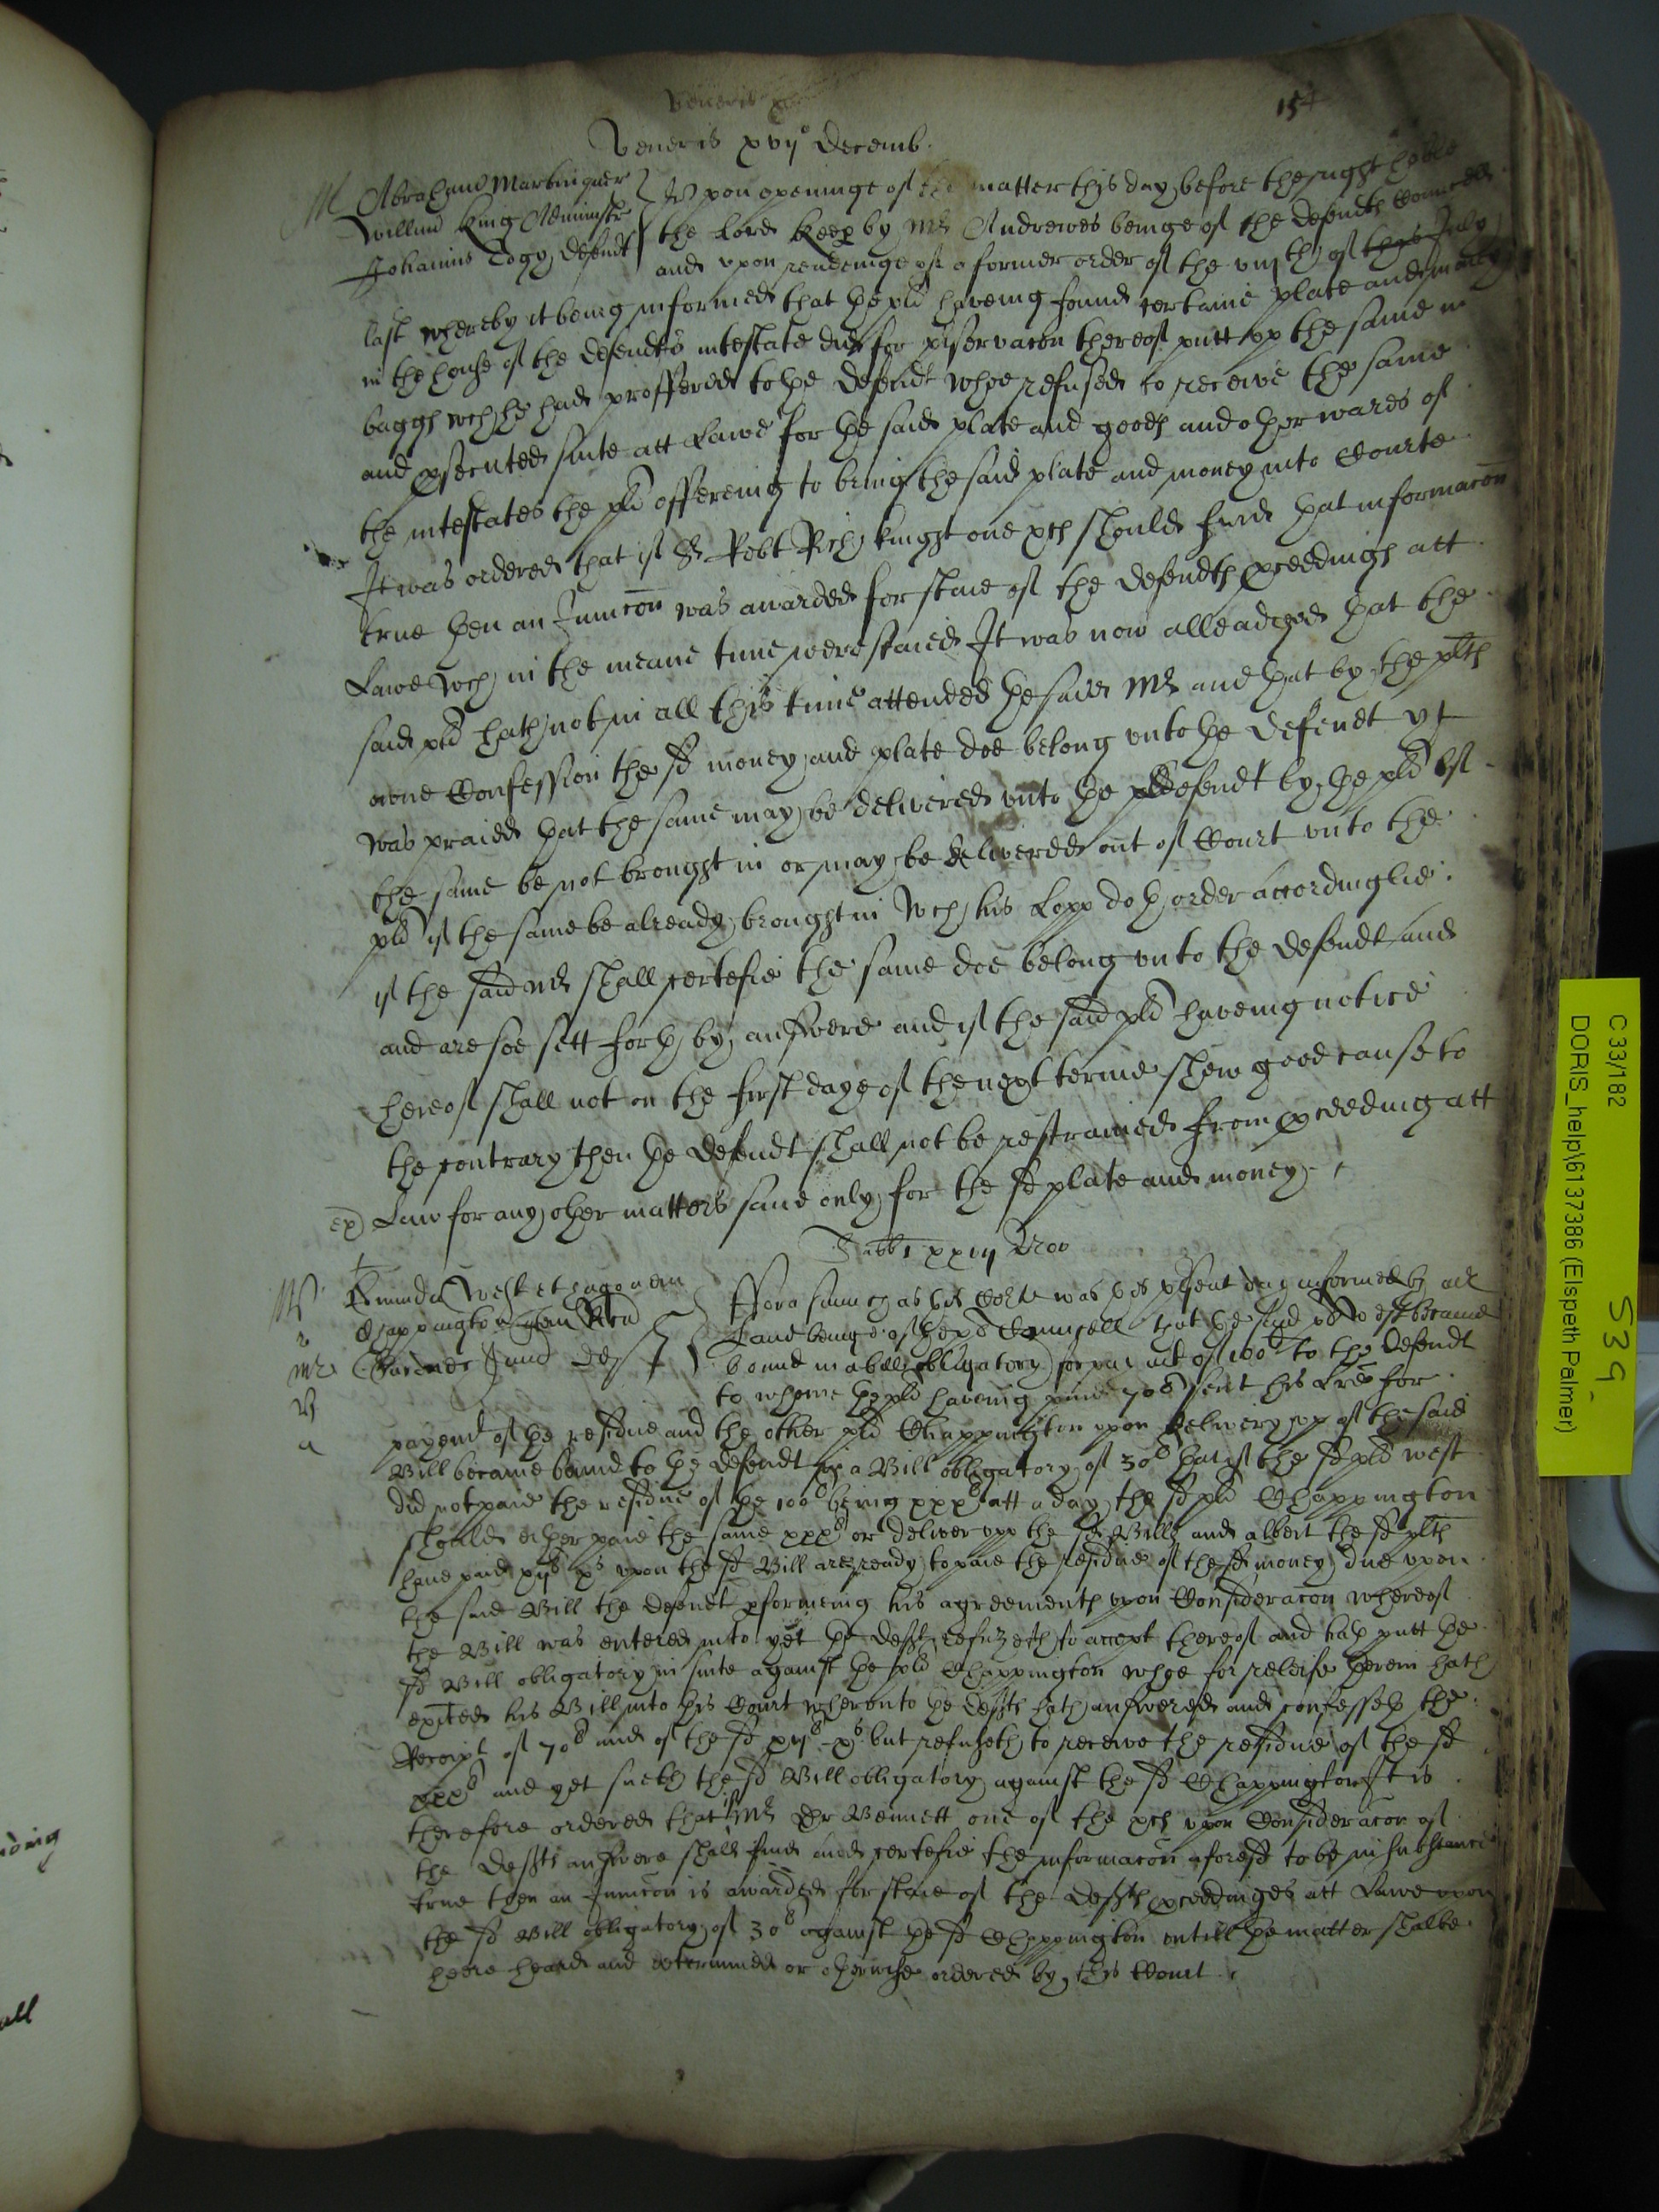 154
Veneris
Veneris xvij° Decemb.
Abrahamus Martin quer
Willmus King Administr
Johannis Edgy defendt
Upon openinge of the matter this day before the right hoble
the Lord Keep by Mr Andrewes beinge of the defendts Councell
and upon readeinge of a former order of the viijth of July
last whereby it being informed that the plt haveing found certaine plate and money
in the house of the defendts intestate did for pservacon thereof putt up the same in
baggs wch he had proffered to the defendt whoe refused to receive the same
and psecuted suite att Lawe for the said plate and goods and other wares of
the intestates the plt offereing to bring the said plate and money into Courte
It was ordered that if Sr Robt Rich knight one of the should find that informacon
true then an Iniuncon was awarded for staie of the defendts pceedings att
Lawe wch in the meane time were staied It was now alleadged that the
said plt hath not in all this time attended the said Mr and that by the plts
owne Confession the sd money and plate doe belong unto the defendt yt
was praied that the same may be delivered unto the defendt by the plt if
the same be not brought in or may be delivered out of Court unto the
plt if the same be already brought in Wch his Lopp doth order accordinglie
if the said Mr shall certefie the same doe belong unto the defendt and
and are soe sett forth by answere and if the said plt haveing notice
hereof shall not on the first daye of the next terme shew good cause to
the contrary then the defendt shall not be restrained from pceeding att
ex Law for any other matters save only for the sd plate and money
Sabbi xxiij Nov
West et
Chappington quer
Gardner def
Forasmuch as this Court was this psent day informed by
Lane being of the plts Councell that the said plt West became
bound in a bill obligatory for of 100l to the defendt
to whome the plt haveing paid 70l sent his Lres for
payemt of the residue and the other plt Chappington upon delivery up of the said
Bill became bound to the defendt in a Bill obligatory of 30l that if the sd plt West
did not paie the residue of the 100l being xxxl att a day the sd plt Chappington
should either paie the same xxxl or deliver upp the sd Bill and albeit the sd plts
have paid xijl xs upon the sd Bill are ready to paie the residue of the sd money due upon
the said Bill the defendt pformeing his agreements upon Consideracon whereof
the Bill was entered into yet the deft refuzeth to accept thereof and hath putt the
sd Bill obligatory in suite against the plt Chappington whoe for releife herein hath
exited his Bill into this Court wherunto the deft hath answered and confesseth the
Receipt of 70l and of the sd xijl xs but refuseth to receive the residue of the sd
xxxl and yet sueth the sd Bill obligatory against the sd Chappington It is
therefore ordered that if Mr Dr Bennett one of the upon Consideracon of
the defts answere shall find and certefie the informacon aforesd to be in substance
true then an Iniuncon is awarded for staie of the defts pceedinges att Lawe upon
the sd Bill obligatory of 30l against the sd Chappington untill the matter shalbe
heere heard and determined or otherwise ordered by this Court
C 33/182
DORIS_help\6137386 (Elspeth Palmer)
S39